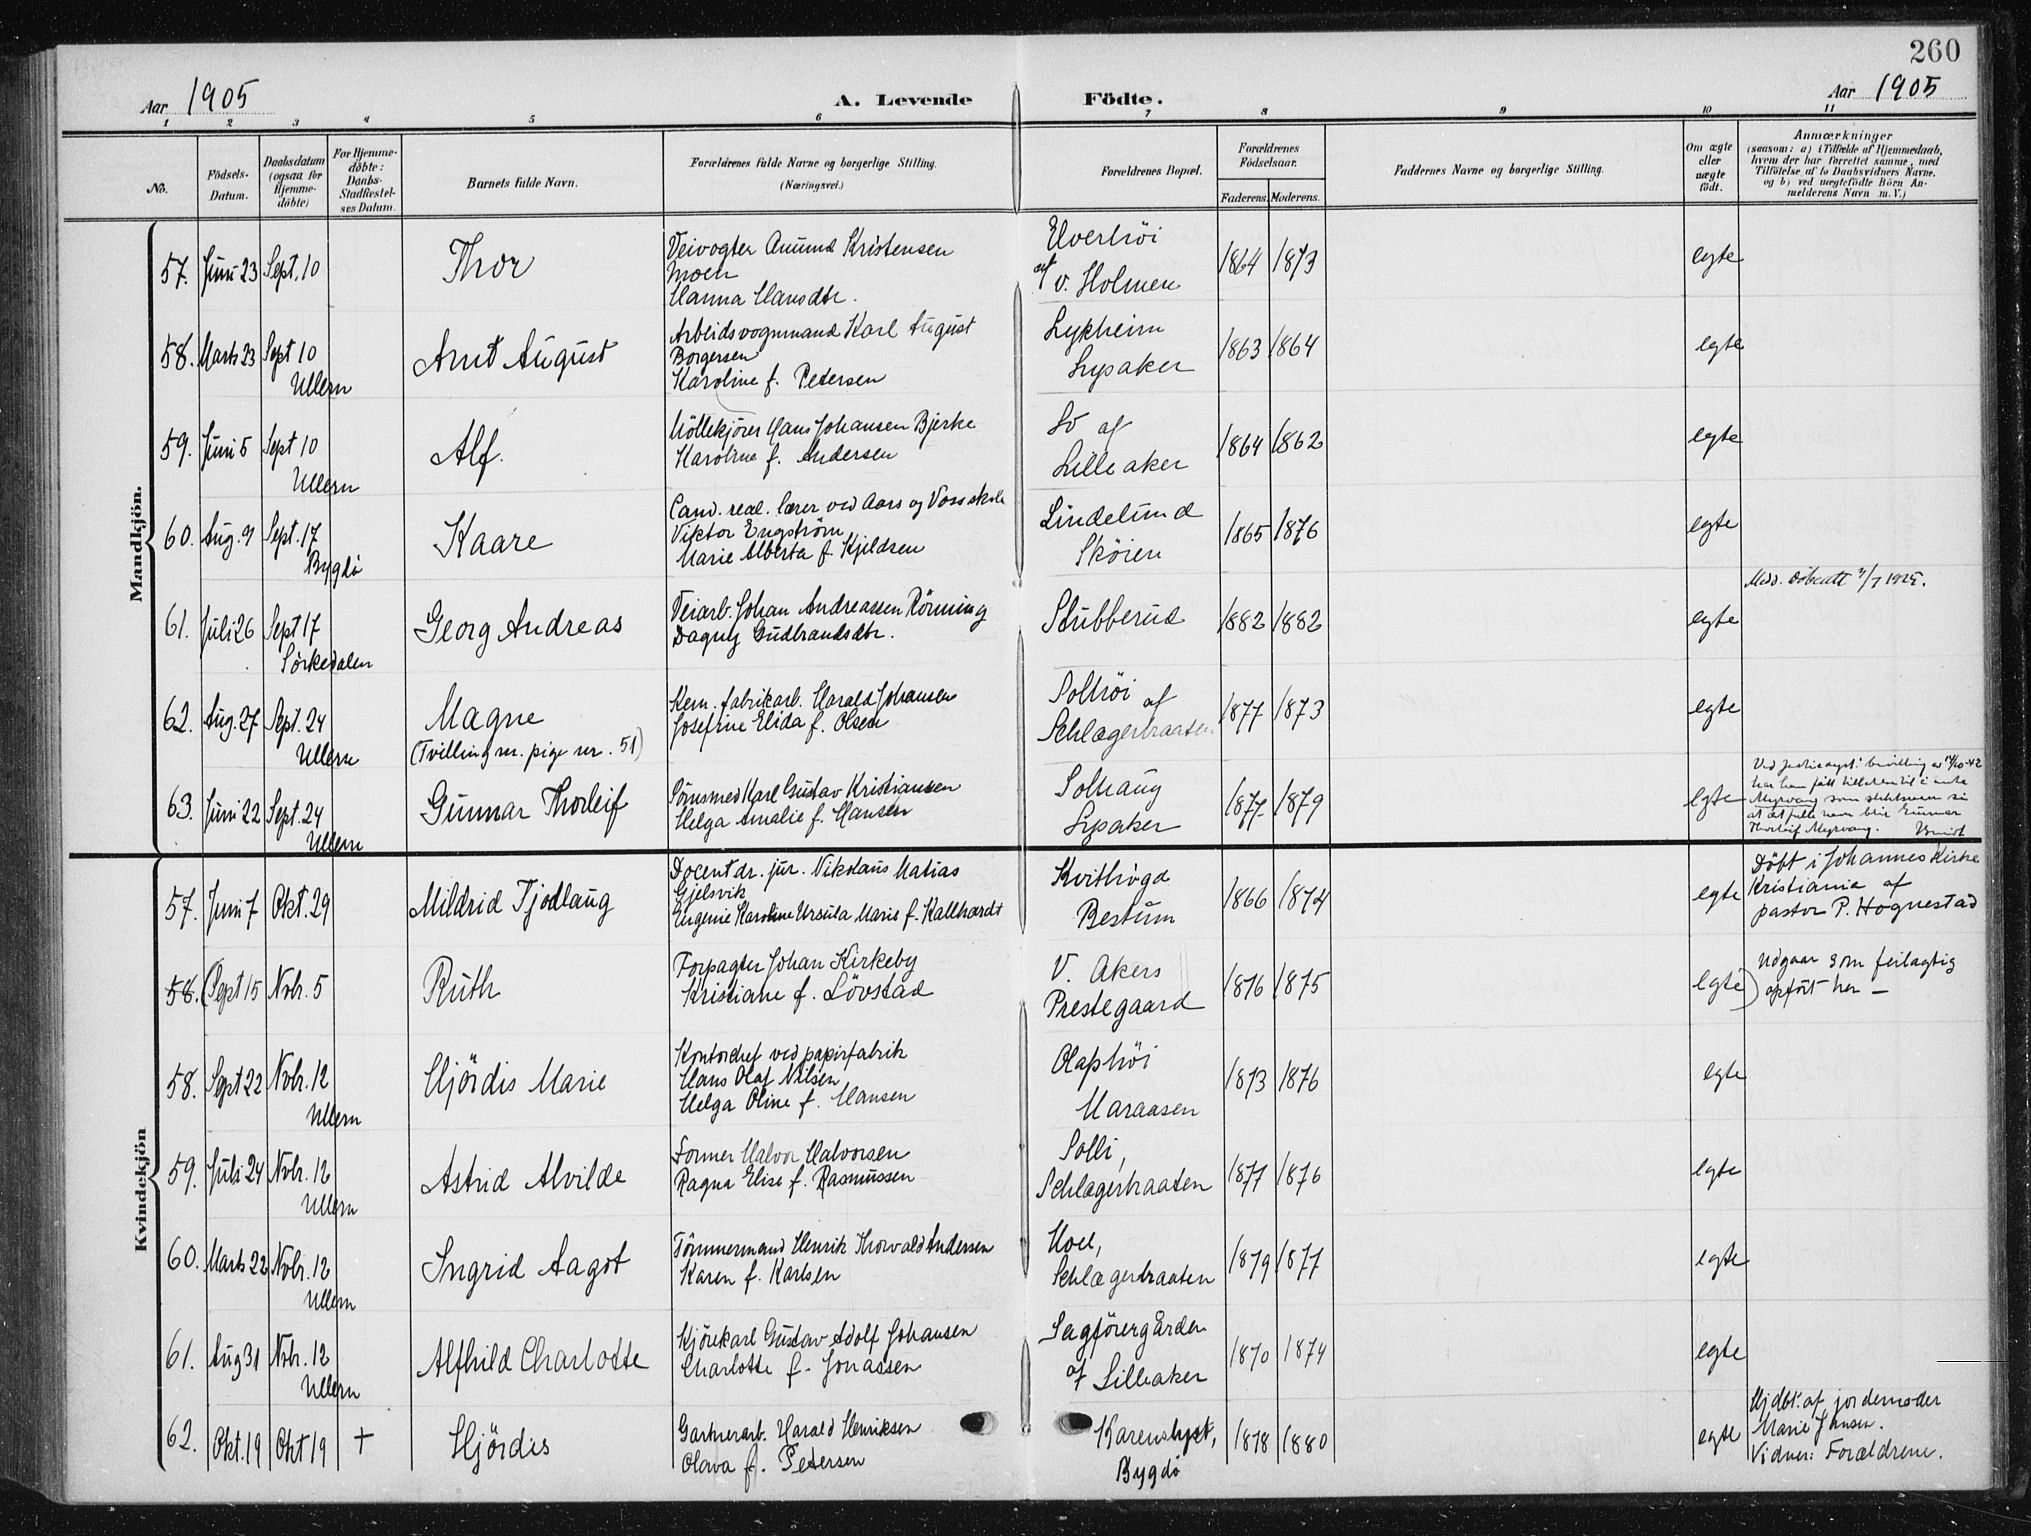 260
Aar 1905
A. Levende Födte.
Aar 1905
1 2 3 4 5 6 7 8 9 10 11
No.
Födsels-
Datum.
Daabsdatum
(ogsaa for
Hjemme-
döbte)
For Hjemme-
döbte:
Daabs-
Stadfæstel-
ses Datum.
Barnets fulde Navn.
Forældrenes fulde Navne og borgerlige Stilling.
(Næringsvei.)
Forældrenes Bopæl.
Forældrenes
Födselsaar.
Faderens. Moderens.
Faddernes Navne og borgerlige Stilling.
Om ægte
eller
uægte
födt.
Anmærkninger
(saasom: a) i Tilfælde af Hjemmedaab,
hvem der har forrettet samme, med
Tilföielse af to Daabsvidners Navne.
og b) ved uægtefödte Börn An-
melderens Navn m. V.)
Mandkjön.
57. Juni 23 Sept. 10 Thor
Veivogter Amund Kristensen
Moen
Hanna Hansdtr.
Elverhöi
af v. Holmen
1864 1873 egte
58. Marts 23 Sept 10
Ullern
Arnt August
Arbeidsvognmand Karl August
Borgersen
Karoline f. Petersen
Lykheim
Lysaker
1863 1864 egte
59. Juni 5 Sept 10
Ullern
Alf.
Möllekjörer Hans Johansen Bjerke
Karoline f. Andersen
Lo af
Lilleaker
1864 1862 egte
60. Aug. 9 Sept. 17
Bygdö
Kaare
Cand. real. lærer ved Aars og Voss skole
Viktor Engström
Marie Alberta f. Kjeldsen
Lindelund
Sköien
1865 1876 egte
61. Juli 26 Sept 17
Sörkedalen
Georg Andreas
Veiarb. Johan Andreassen Rönning
Dagny Gudbrandsdtr.
Stubberud
1882 1882 egte
Medd. döbeatt /7 1925.
62. Aug. 27 Sept. 24
Ullern
Magne
(Tvilling m. pige nr. 51)
Kem. fabrikarb. Harald Johansen
Josefine Elida f. Olsen
Solhöi af
Schlagerbraaten
1877 1873 egte
63. Juni 22 Sept. 24
Ullern
Gunnar Thorleif
Karl Gustav Kristiansen
Helga Amalie f. Hansen
Solhaug
Lysaker
1877 1879 egte
Ved bevilling av
har han fått tillatelse til å anta
Myrvang som slektsnavn så
at det fulle navn blir Gunnar
Thorleif Myrvang.
Kvindekjön
57. Juni 7 Okt. 29 Mildrid Tjodlaug
Docent dr. jur. Nikolaus Matias
Gjelsvik
Eugenie Karoline Ursula Marie f. Kallhardt
Kvithögda
Bestum
1866 1874 egte
Döbt i Johannes Kirke
Kristiania af
pastor P. Hognestad
58. (Sept 15 Nvbr. 5 Ruth
Forpagter Johan Kirkeby
Kristiane f. Lövstad
V. Akers
Prestegaard
1876 1875 egte)
Udgaar som feilagtig
opfört her —
58. Sept 22 Nvbr. 12
Ullern
Hjördis Marie
Kontorchef ved papirfabrik
Hans Olaf Nilsen
Helga Oline f. Hansen
Olaphöi
Maraasen
1873 1876 egte
59. Juli 24 Nvbr. 12
Ullern
Astrid Alvilde
Former Halvor Halvorsen
Ragna Elise f. Rasmussen
Solli,
Schlagerbraaten
1877 1876 egte
60. Marts 22 Nvbr. 12
Ullern
Ingrid Aagot
Tömmermand Henrik Thorvald Andersen
Karen f. Karlsen
Moel,
Schlagerbraaten
1879 1877 egte
61. Aug 31 Nvbr. 12
Ullern
Alfhild Charlotte
Kjörekarl Gustav Adolf Johansen
Charlotte f. Jonassen
Sagförergården
af Lilleaker
1870 1874 egte
62. Okt. 19 Okt 19 + Hjördis
Gartnerarb. Harald Henriksen
Olava f. Petersen
Karenslyst,
Bygdö
1878 1880 egte
Hjdbt. af jordemoder
Marie Jensen.
Vidner: Forældrene.